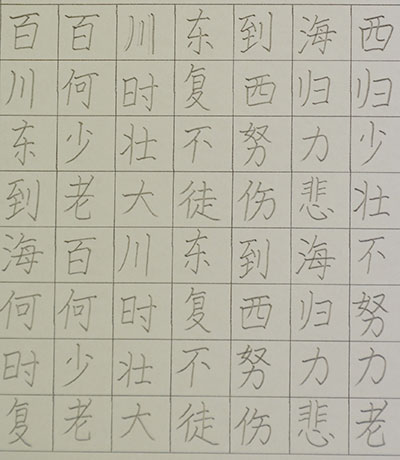 百百川东到海西
川何时复西归归
东少壮不努力少
到老大徒伤悲壮
海百川东到海不
何何时复西归努
时少壮不努力力
复老大徒伤悲老